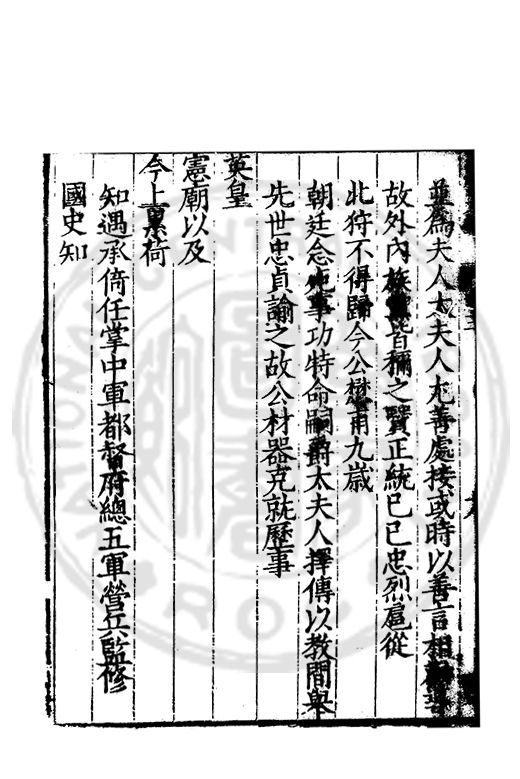 並為夫人太夫人尤善處接或時以善言相
故外內族皆稱之賢正統己巳忠烈扈從
北狩不得歸今公懋甫九歲
朝廷念先事功特命嗣爵太夫人擇傅以教間舉
先世忠貞諭之故公材器克就歷事
英皇
憲廟以及
今上累荷
知遇承倚任掌中軍都督府總五軍營兵監修
國史知